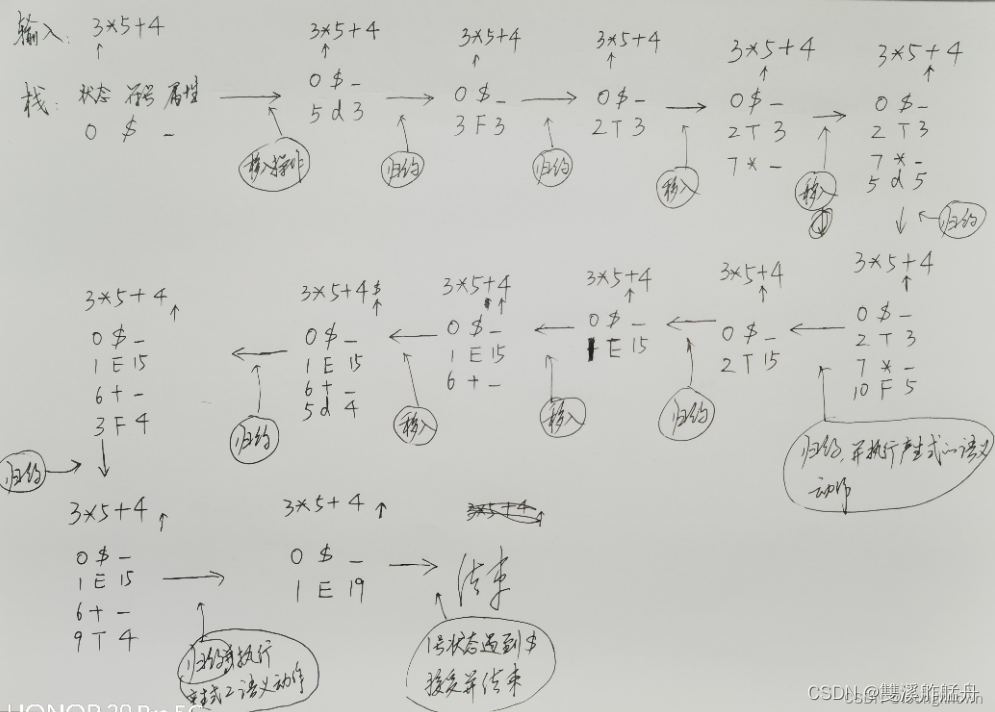 输入: 3*5+4
栈: 状态 符号 属性
0 $ _
移入操作
3*5+4
0 $ _
5 d 3
归约
3*5+4
0 $ _
3 F 3
归约
3*5+4
0 $ _
2 T 3
移入
3*5+4
0 $ _
2 T 3
7 * _
移入
3*5+4
0 $ _
2 T 3
7 * _
5 d 5
归约
3*5+4
0 $ _
2 T 3
7 * _
10 F 5
归约,并执行产生式的语义
动作
3*5+4
0 $ _
2 T 15
归约
3*5+4
0 $ _
E 15
移入
3*5+4
0 $ _
1 E 15
6 + _
移入
3*5+4$
0 $ _
1 E 15
6 + _
5 d 4
归约
3*5+4
0 $ _
1 E 15
6 + _
3 F 4
归约
3*5+4
0 $ _
1 E 15
6 + _
9 T 4
归约并执行
产生式的语义动作
3*5+4
0 $ _
1 E 19
1号状态遇到$
接受并结束
结束
CSDN @雙溪舴艋舟